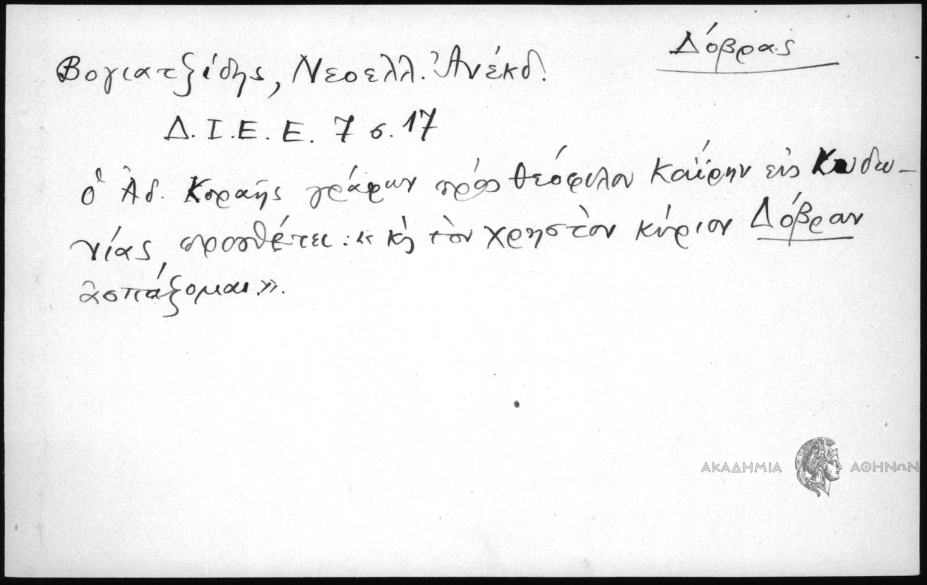 Δόβρας
Βογιατζίδης, Νεοελλ. Ἀνέκδ.
Δ. Ι. Ε. Ε. 7 σ. 17
ὁ Ἀδ. Κοραῆς γράφων πρὸς Θεόφιλον Καΐρην εἰς Κυδω-
νίας, προσθέτει: « κὴ τὸν χρηστὸν κύριον Δόβραν
ἀσπάζομαι ».
ΑΚΑΔΗΜΙΑ ΑΘΗΝΩΝ